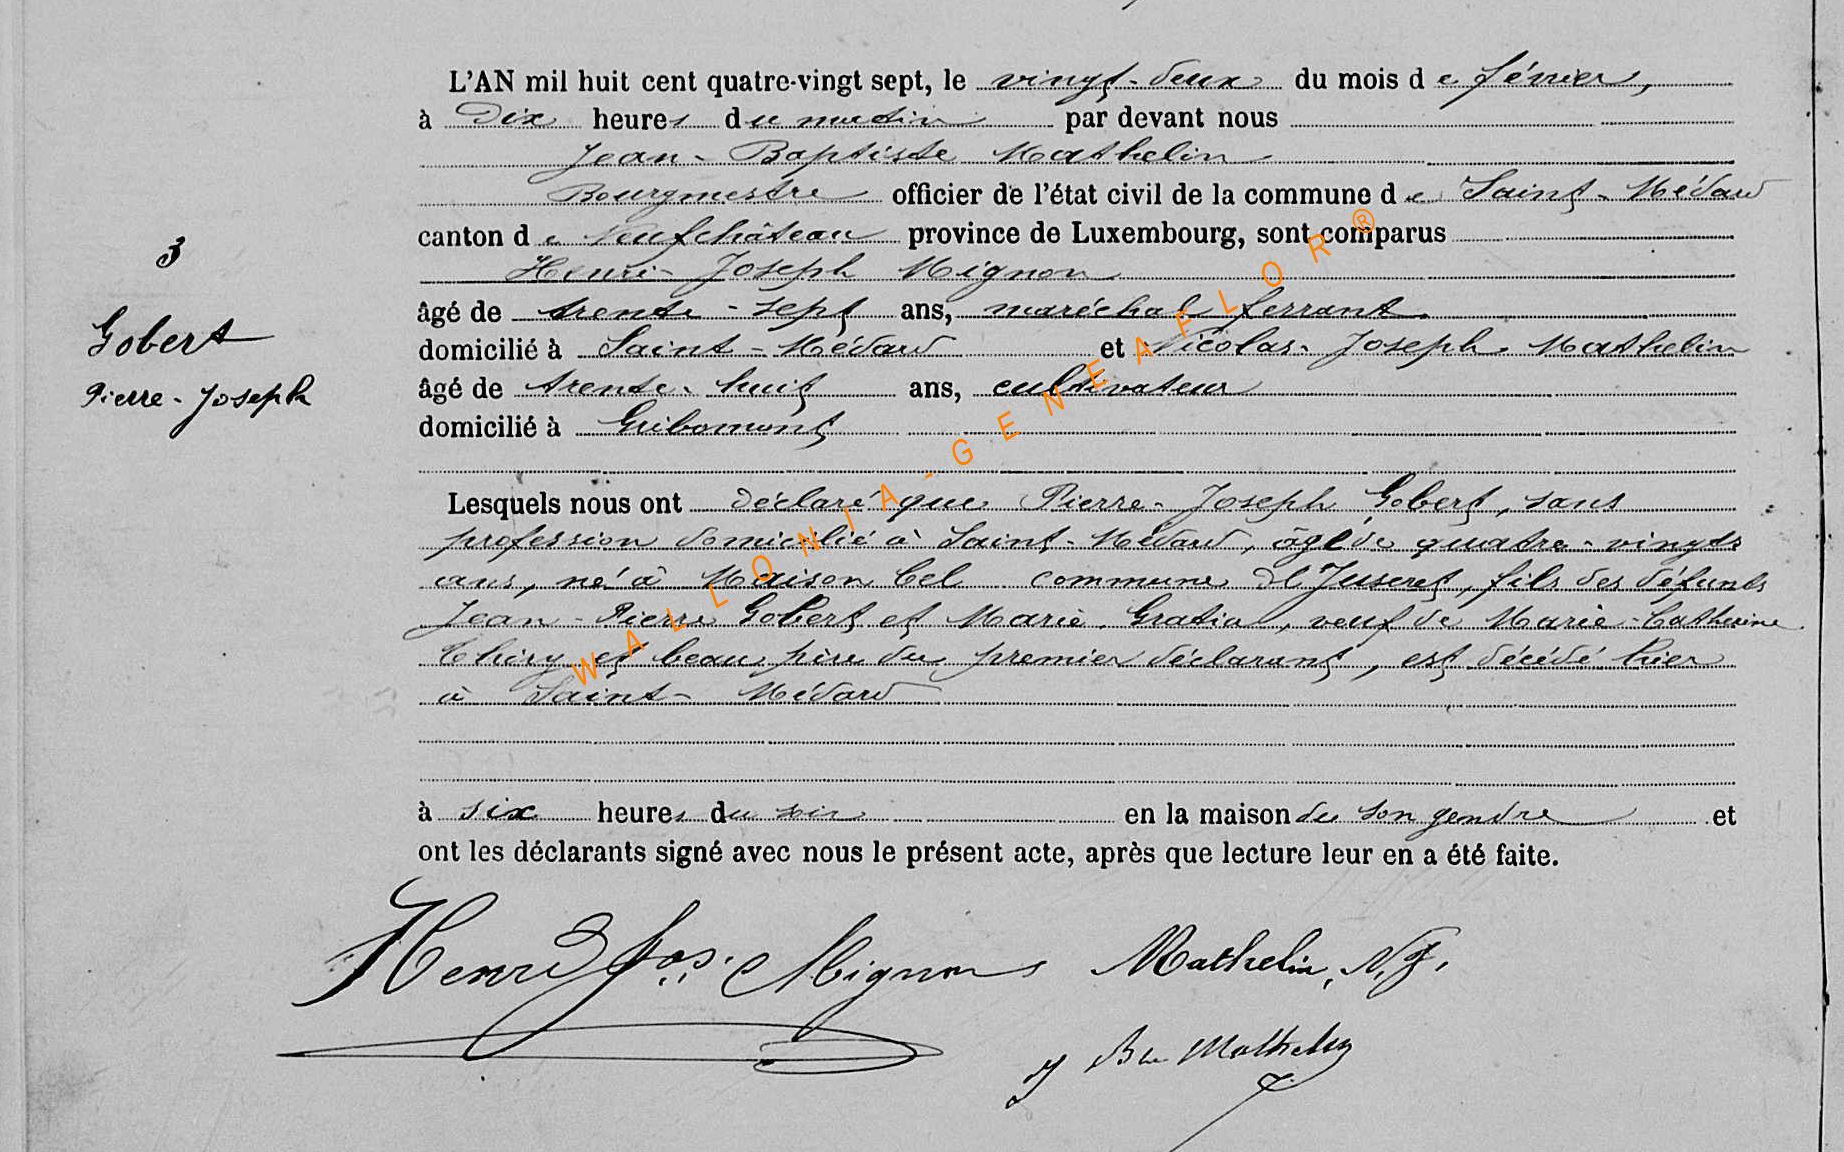 L'AN mil huit cent quatre-vingt sept, le vingt-deux du mois de février,
à Dix heures du matin par devant nous
Jean-Baptiste Mathelin
Bourgmestre officier de l'état civil de la commune de Saint-Médard
canton de Neufchâteau province de Luxembourg, sont comparus
Henri-Joseph Mignon
âgé de trente-sept ans, maréchal ferrant
domicilié à Saint-Médard et Nicolas-Joseph Mathelin
âgé de trente-huit ans, cultivateur
domicilié à Gribomont
3
Gobert
Pierre-Joseph
Lesquels nous ont déclaré que Pierre-Joseph Gobert, sans
profession domicilié à Saint-Médard, âgé de quatre-vingts
ans, né à Maison Cel commune de Jusseret, fils des défunts
Jean-Pierre Gobert et Marie Gratia, veuf de Marie-Catherine
Chéry et beau père du premier déclarant, est décédé hier
à Saint-Médard
à six heures du soir en la maison de son gendre et
ont les déclarants signé avec nous le présent acte, après que lecture leur en a été faite.
Henri Jos. Mignon Mathelin, N.J.
J Bte Mathelin
WALLONIA-GENEAFLOR®